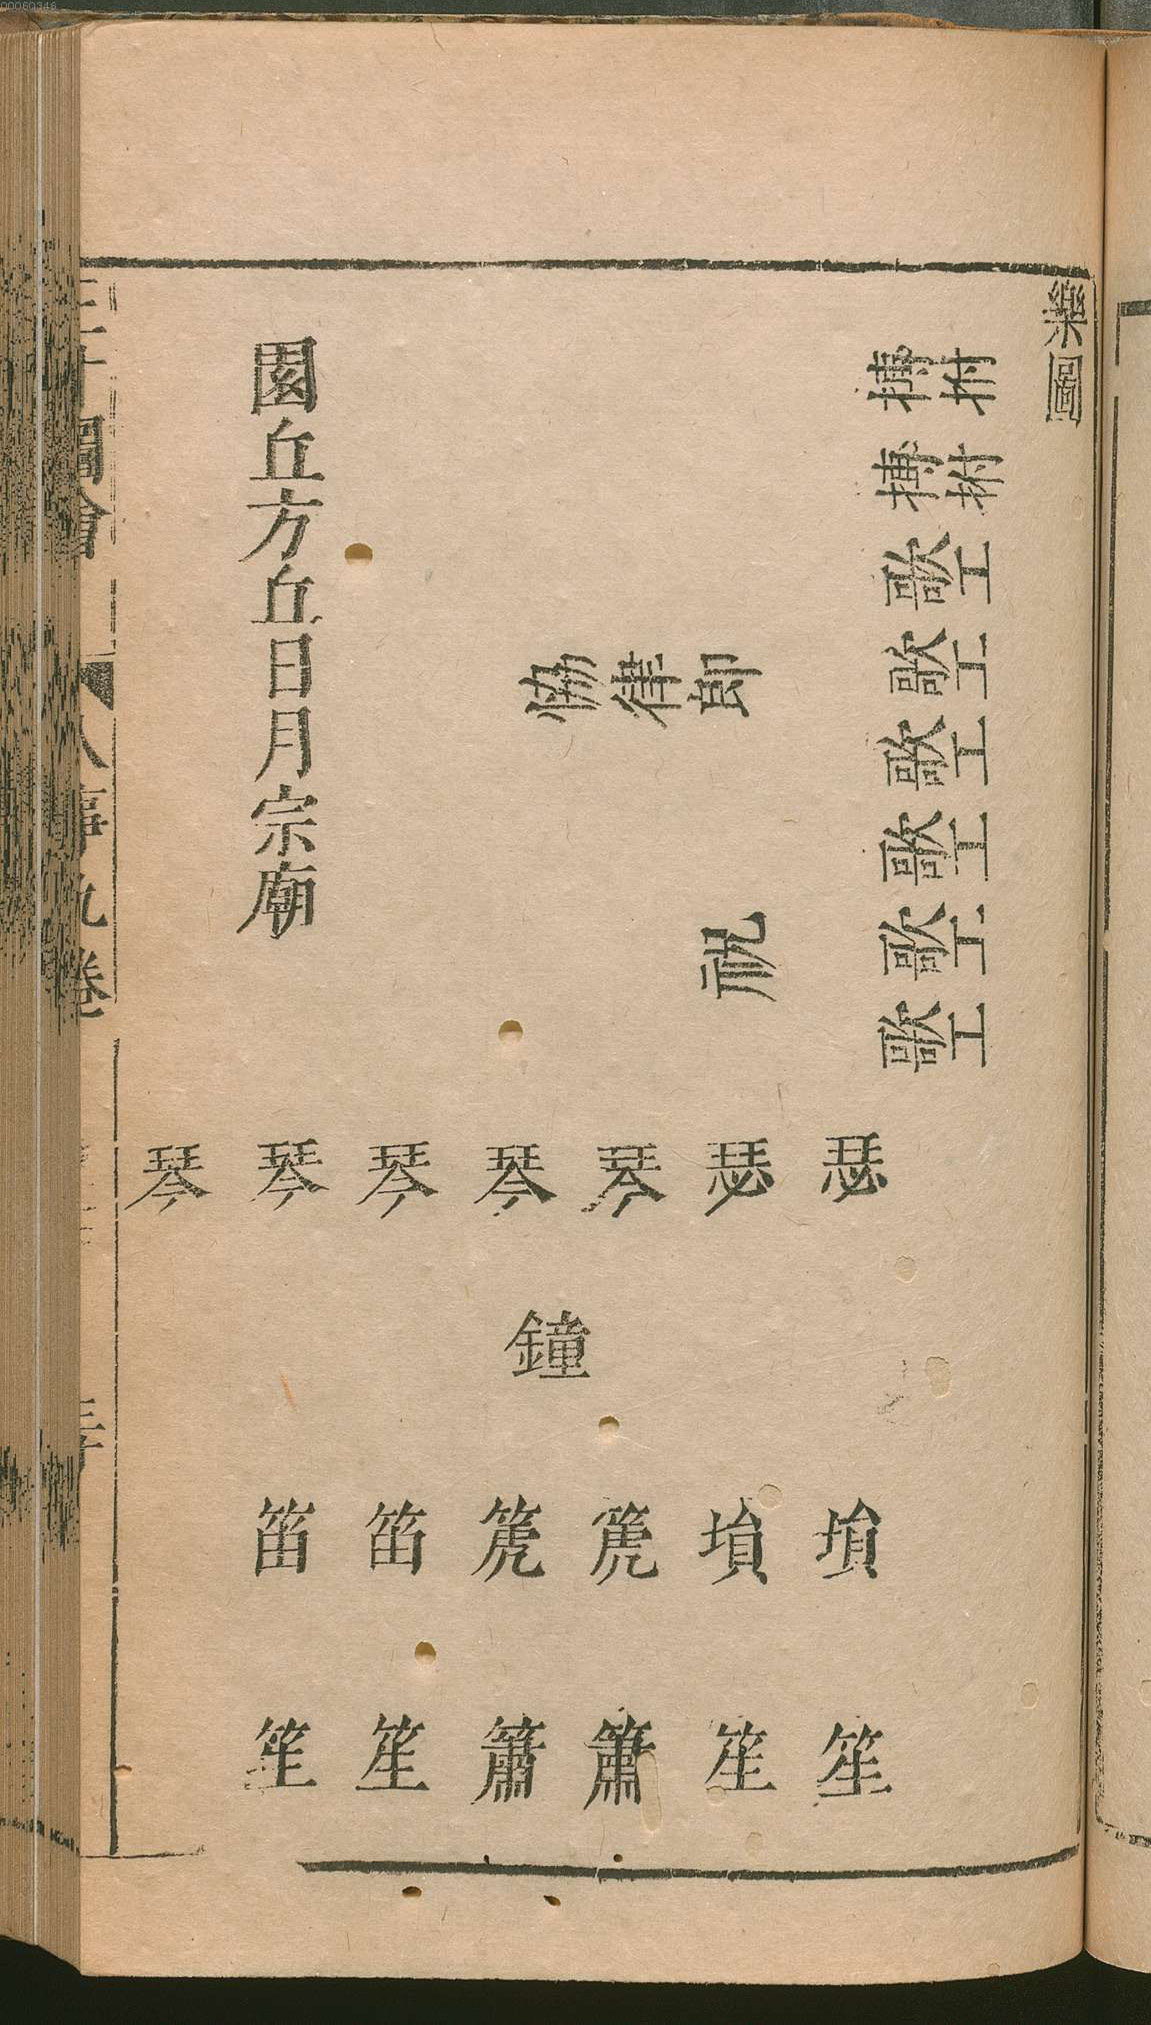 00060346
樂圖
搏拊
搏拊
歌工
歌工
歌工
歌工
歌工
歌工
協律郎
祝
圜丘方丘日月宗廟
瑟 瑟 琴 琴 琴 琴 琴
鐘
塤 塤 箎 箎 笛 笛
笙 笙 簫 簫 笙 笙
三才圖會
人事九卷